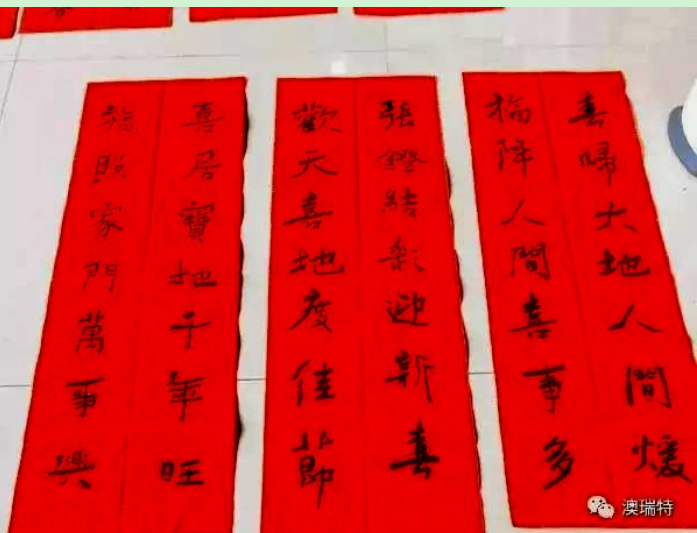 春帰大地人間煖
福降人間喜事多
張鐙結彩迎新春
歡天喜地度佳節
喜居寶地千年旺
福照家門萬事興
澳瑞特